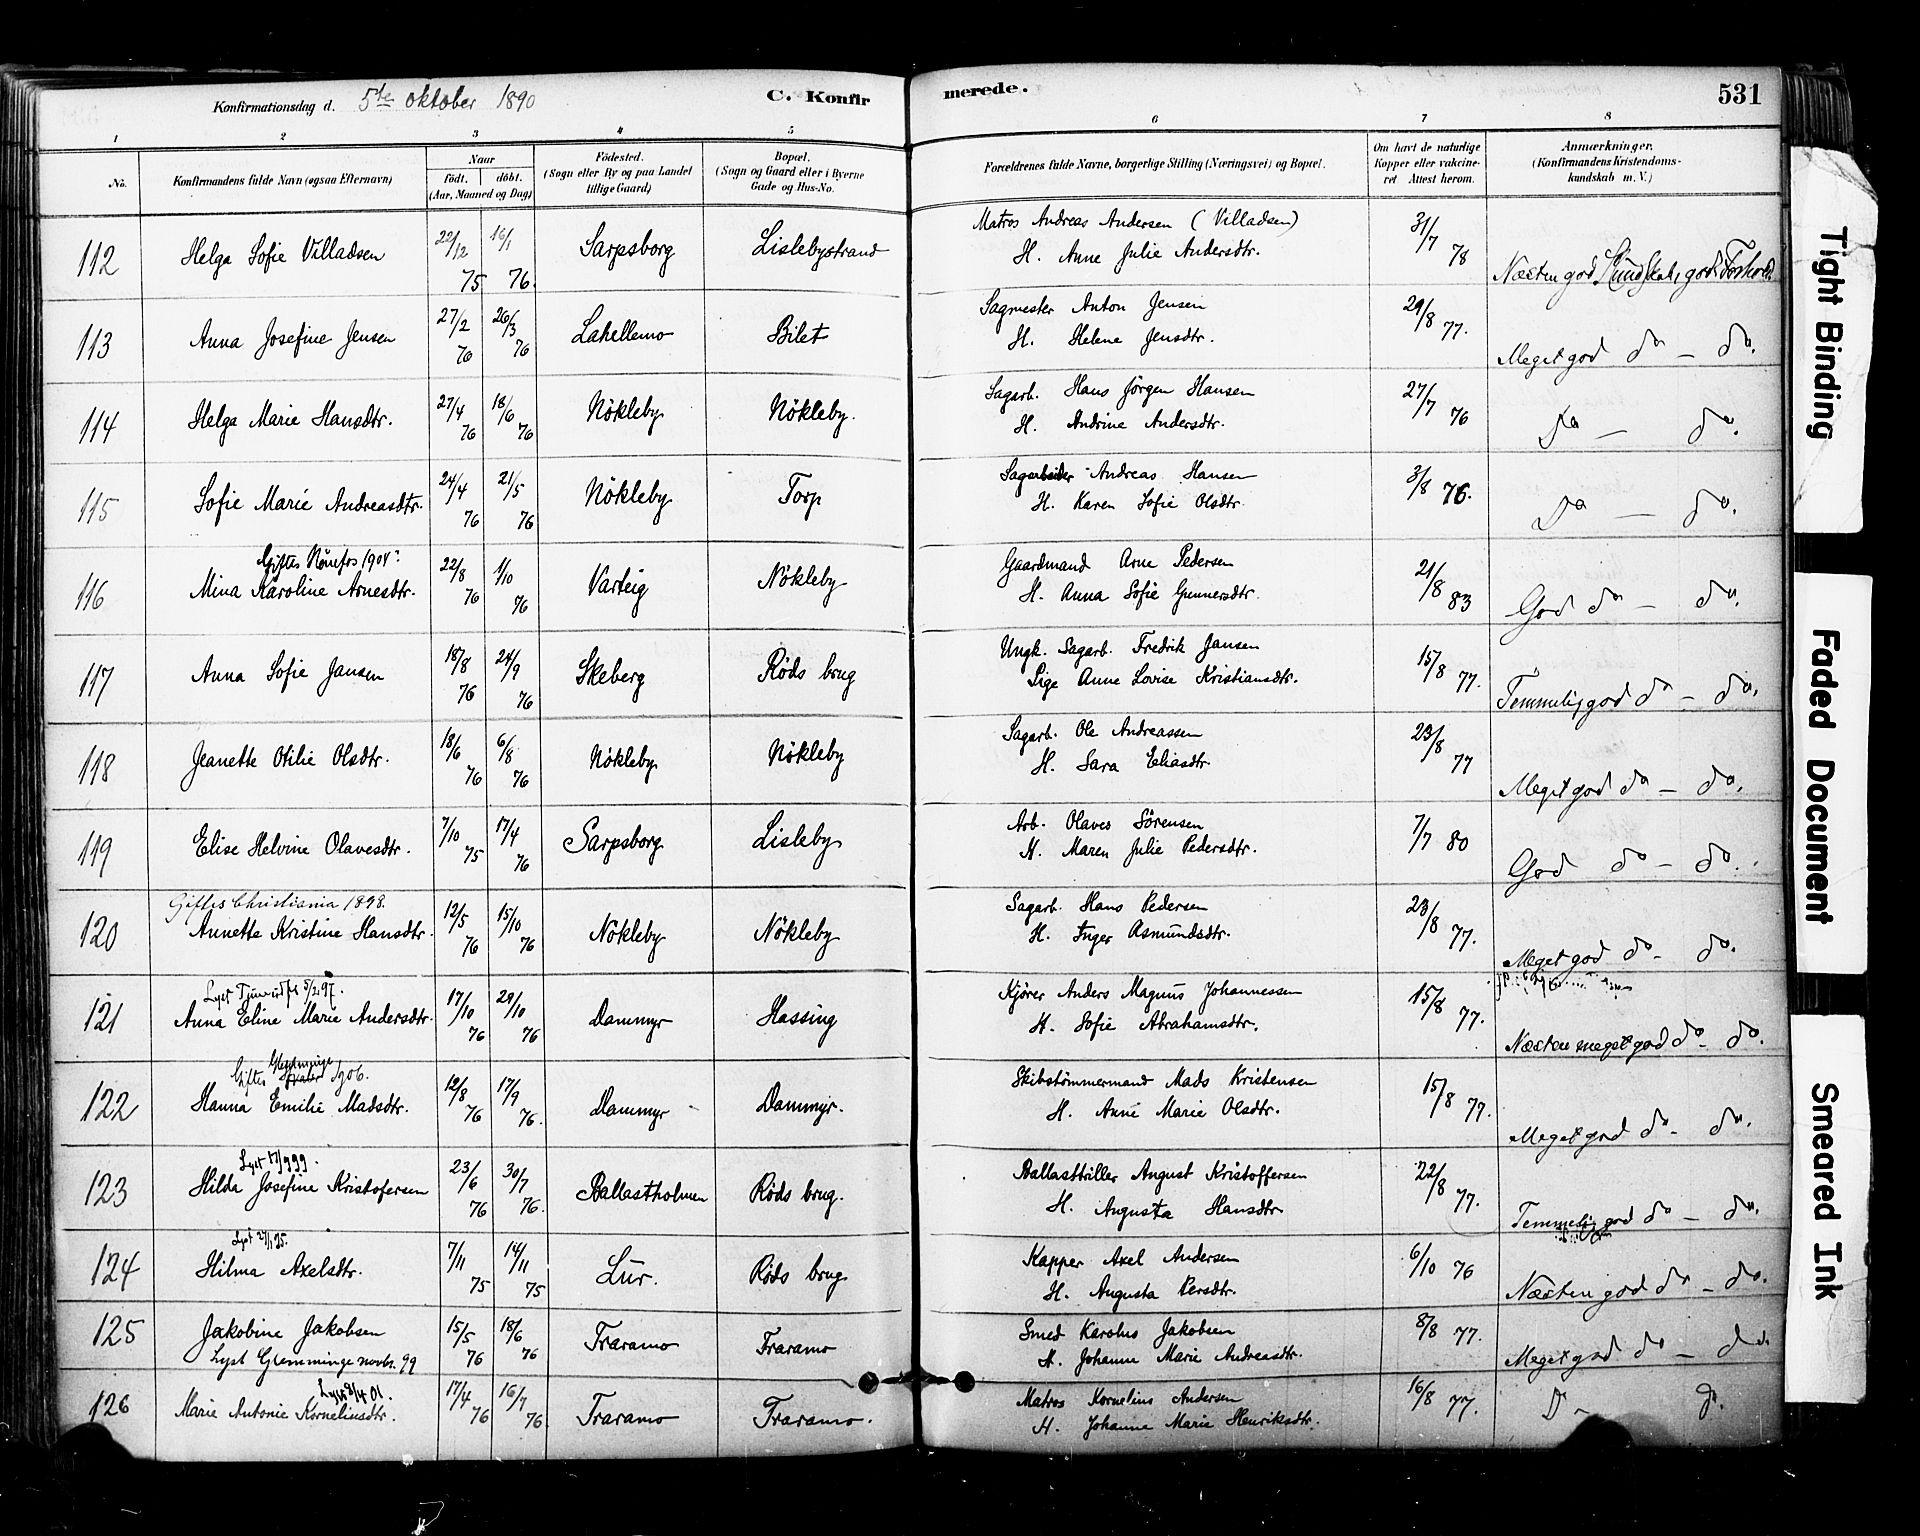 Konfirmationsdag d. 5te oktober 1890
C. Konfirmerede.
531
1 2 3 4 5 6 7 8
No.
Konfirmandens fulde Navn (ogsaa Efternavn)
Naar
født. døbt.
(Aar, Maaned og Dag)
Fødested.
(Sogn eller By og paa Landet
tillige Gaard)
Bopæl.
(Sogn og Gaard eller i Byerne
Gade og Hus-No.
Forældrenes fulde Navne, borgerlige Stilling (Næringsvei) og Bopæl.
Om havt de naturlige
Kopper eller vakcine-
ret Attest herom.
Anmærkninger.
(Konfirmandens Kristendoms-
kundskab m. V.)
112 Helga Sofie Villadsen 22/12 75 16/1 76. Sarpsborg Lislebystrand Matros Andreas Andersen (Villadsen)
H. Anne Julie Andersdtr. 31/7 78 Næsten god Kundskab, god Forhold.
113 Anna Josefine Jensen 27/2 76 26/3 76 Lahellemo Bilet Sagmester Anton Jensen
H. Helene Jensdtr. 29/8 77. Meget god do - do.
114 Helga Marie Hansdtr. 27/4 76 18/6 76 Nökleby Nökleby. Sagarb. Hans Jörgen Hansen
H. Andrine Andersdtr. 27/7 76 Do - do.
115 Sofie Marie Andreasdtr. 24/4 76 21/5 76 Nökleby Torp Sagarbeider Andreas Hansen
H. Karen Sofie Olsdtr. 3/8 76. Do - do.
Giftes 1904
116 Mina Karoline Arnesdtr. 22/8 76 1/10 76 Varteig Nökleby Gaardmand Arne Pedersen
H. Anna Sofie Gunnersdtr. 21/8 83 God do - do.
117 Anna Sofie Jansen 18/8 76 24/9 76 Skeberg Röds brug Ungk. Sagarb. Fredrik Jansen
Pige Anne Lovise Kristiansdtr. 15/8 77. Temmelig god do - do.
118 Jeanette Otilie Olsdtr. 18/6 76 6/8 76 Nökleby Nökleby Sagarb. Ole Andreassen
H. Sara Eliasdtr. 23/8 77 Meget god do - do.
119 Elise Helvine Olavesdtr. 7/10 75 17/4 76 Sarpsborg Lisleby Arb. Olaves Sörensen
H. Maren Julie Pedersdtr. 7/7 80 God do - do.
Giftes Christiania 1898.
120 Annette Kristine Hansdtr. 12/5 76 15/10 76 Nökleby Nökleby Sagarb. Hans Pedersen
H. Inger Asmundsdtr. 23/8 77. Meget god do - do.
Lyst 5/2 97.
121 Anna Eline Marie Andersdtr. 17/10 76 29/10 76 Dammyr Hassing Kjörer Anders Magnus Johannessen
H. Sofie Abrahamsdtr. 15/8 77. Næsten meget god do - do.
Giftes Glemminge 1906.
122 Hanna Emilie Madsdtr. 12/8 76 17/9 76. Dammyr Dammyr. Skibstömmermand Mads Kristensen
H. Anne Marie Olsdtr. 15/8 77. Meget god do - do.
Lyst 17/9 99.
123 Hilda Josefine Kristofersen 23/6 76 30/7 76. Ballastholmen Röds brug. Ballasttriller August Kristoffersen
H. Augusta Hansdtr. 22/8 77. Temmelig god do - do.
Lyst 27/1 95.
124 Hilma Axelsdtr. 7/11 75 14/11 75 Lur. Röds brug Kapper Axel Andersen
H. Augusta Persdtr. 6/10 76 Næsten god do - do.
125 Jakobine Jakobsen 15/5 76 18/6 76 Traramo Traramo Smed Karolus Jakobsen
Lyst Glemminge novbr. 99 H. Johanne Marie Andreasdtr. 8/8 77. Meget god do - do.
Lyst 8/4 01.
126 Marie Antonie Korneliusdtr. 17/4 76 16/7 76. Traramo Traramo. Matros Kornelius Andersen
H. Johanne Marie Henriksdtr. 16/8 77. Do - do.
Tight Binding
Faded Document
Smeared Ink